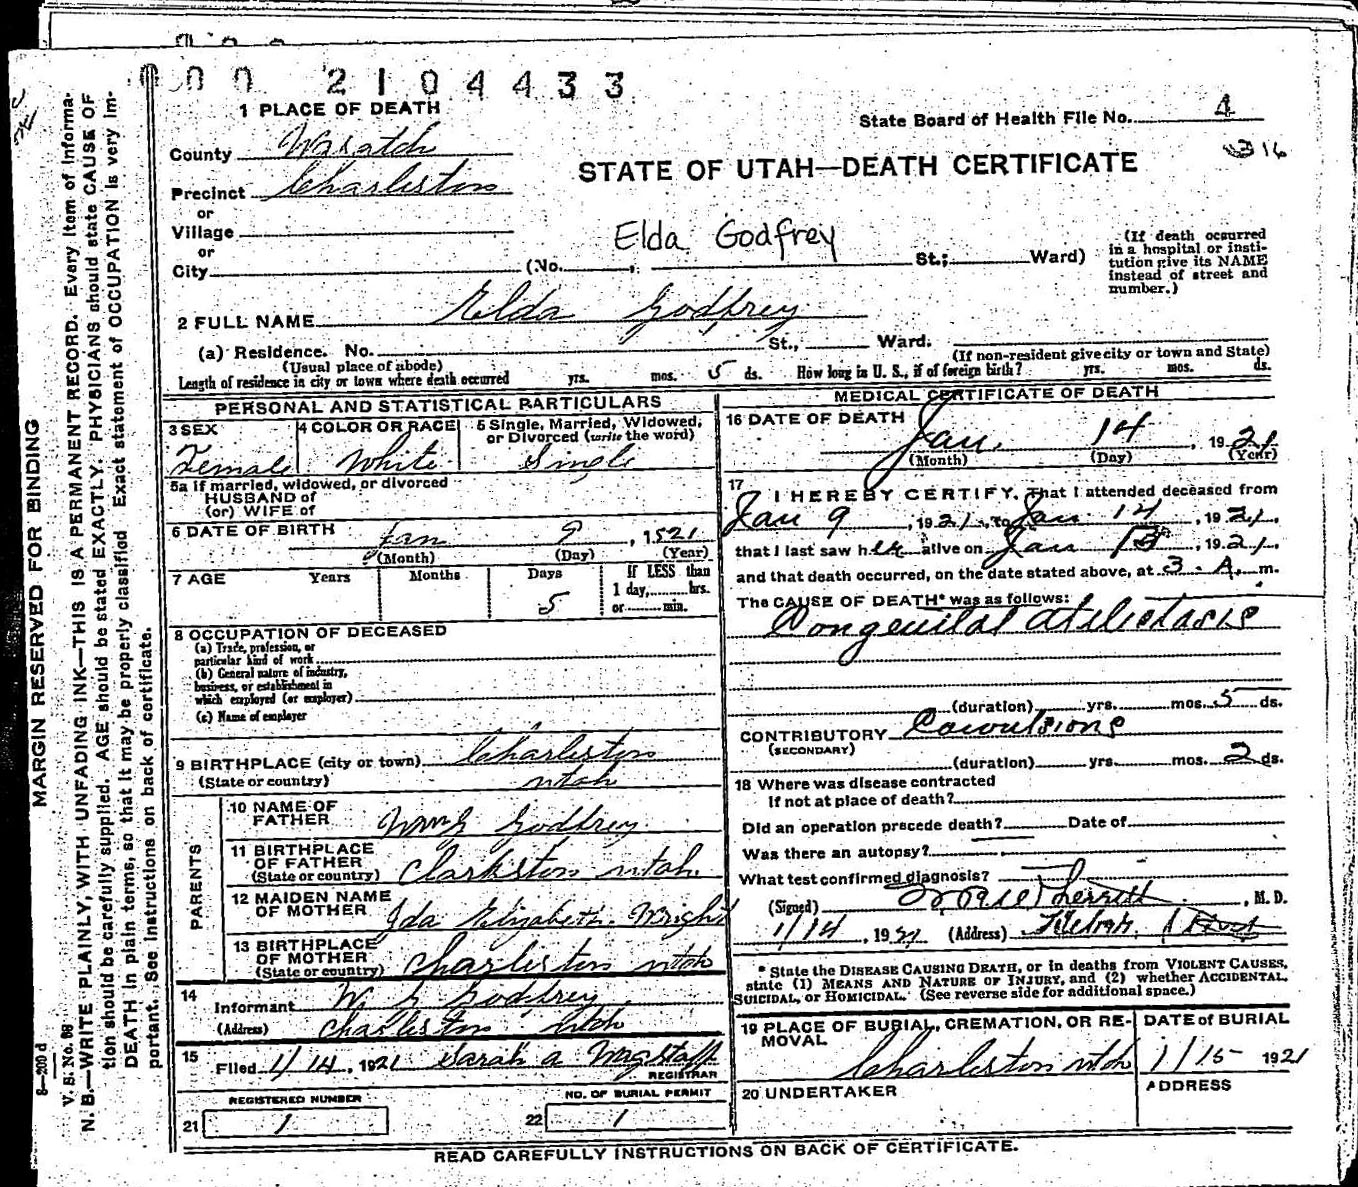 000 2104433
1 PLACE OF DEATH
State Board of Health File No. 4
316
County Wasatch
STATE OF UTAH—DEATH CERTIFICATE
Precinct Charleston
or
Village
or
Elda Godfrey
City (No. , St.; Ward)
(If death occurred in a hospital or insti-
tution give its NAME
instead of street and
number.)
2 FULL NAME Elda Godfrey
(a) Residence. No. St., Ward.
(Usual place of abode) (If non-resident give city or town and State)
Length of residence in city or town where death occurred yrs. mos. 5 ds. How long in U. S., if of foreign birth? yrs. mos. ds.
PERSONAL AND STATISTICAL PARTICULARS
3 SEX Female
4 COLOR OR RACE White
5 Single, Married, Widowed,
or Divorced (write the word)
Single
5a If married, widowed, or divorced
HUSBAND of
(or) WIFE of
6 DATE OF BIRTH Jan 9, 1921
(Month) (Day) (Year)
7 AGE Years Months Days 5
If LESS than
1 day, hrs.
or min.
8 OCCUPATION OF DECEASED
(a) Trade, profession, or
particular kind of work
(b) General nature of industry,
business, or establishment in
which employed (or employer)
(c) Name of employer
9 BIRTHPLACE (city or town) Charleston
(State or country) Utah
PARENTS
10 NAME OF
FATHER Wm G Godfrey
11 BIRTHPLACE
OF FATHER
(State or country) Clarkston Utah.
12 MAIDEN NAME
OF MOTHER Ida Elizabeth Wright
13 BIRTHPLACE
OF MOTHER
(State or country) Charleston Utah
14
Informant W G Godfrey
(Address) Charleston Utah
15
Filed 1/14, 1921 Sarah A Wagstaff
REGISTRAR
REGISTERED NUMBER
21 1
NO. OF BURIAL PERMIT
22 1
MEDICAL CERTIFICATE OF DEATH
16 DATE OF DEATH
Jan. 14, 1921
(Month) (Day) (Year)
17
I HEREBY CERTIFY, That I attended deceased from
Jan 9, 1921, to Jan. 14, 1921,
that I last saw her alive on Jan 13, 1921,
and that death occurred, on the date stated above, at 3. A. m.
The CAUSE OF DEATH* was as follows:
Congenital Atelectasis
(duration) yrs. mos. 5 ds.
CONTRIBUTORY Convulsions
(SECONDARY)
(duration) yrs. mos. 2 ds.
18 Where was disease contracted
If not at place of death?
Did an operation precede death? Date of
Was there an autopsy?
What test confirmed diagnosis?
(Signed) , M. D.
1/14, 1921 (Address)
* State the DISEASE CAUSING DEATH, or in deaths from VIOLENT CAUSES,
state (1) MEANS AND NATURE OF INJURY, and (2) whether ACCIDENTAL,
SUICIDAL, or HOMICIDAL. (See reverse side for additional space.)
19 PLACE OF BURIAL, CREMATION, OR RE-
MOVAL
Charleston Utah
DATE of BURIAL
1/15 1921
20 UNDERTAKER
ADDRESS
READ CAREFULLY INSTRUCTIONS ON BACK OF CERTIFICATE.
MARGIN RESERVED FOR BINDING
8—200 d
V. S. No. 88
N. B.—WRITE PLAINLY, WITH UNFADING INK—THIS IS A PERMANENT RECORD. Every item of informa-
tion should be carefully supplied. AGE should be stated EXACTLY. PHYSICIANS should state CAUSE OF
DEATH in plain terms, so that it may be properly classified. Exact statement of OCCUPATION is very im-
portant. See instructions on back of certificate.